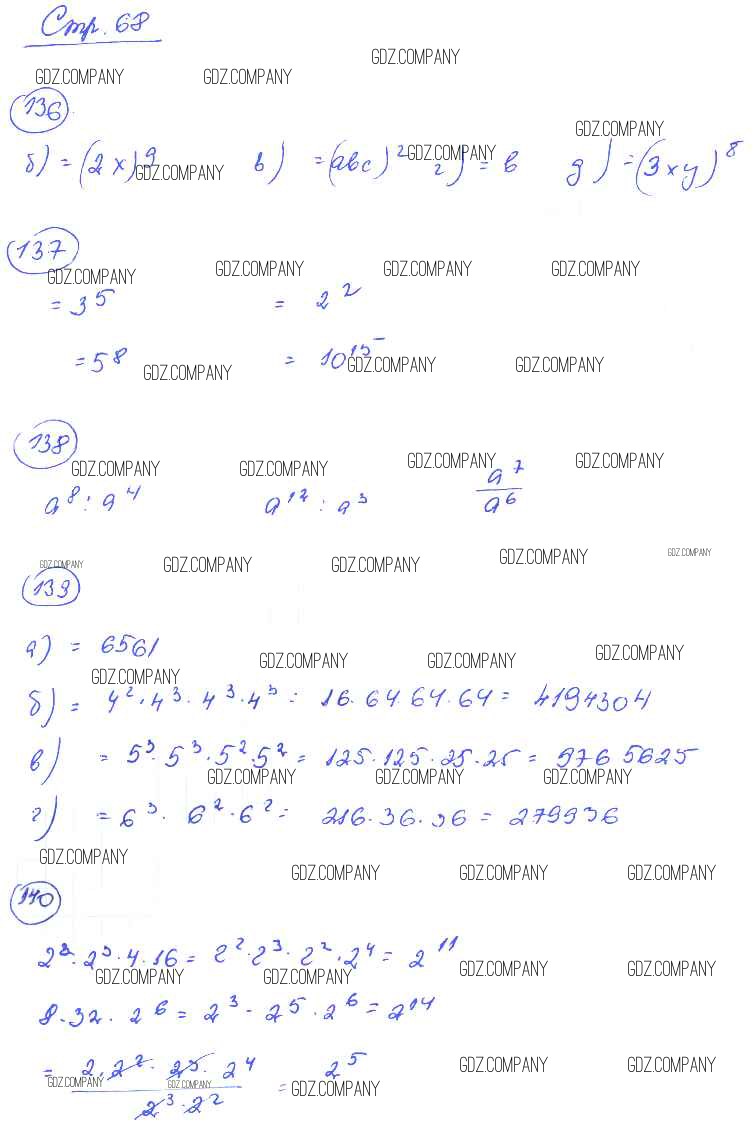 Стр. 68
GDZ.COMPANY GDZ.COMPANY GDZ.COMPANY
136 GDZ.COMPANY
б) = (2x)⁹ GDZ.COMPANY в) = (abc)² GDZ.COMPANY г) = в д) = (3xy)⁸
137
GDZ.COMPANY GDZ.COMPANY GDZ.COMPANY GDZ.COMPANY
= 3⁵ = 2²
= 5⁸ GDZ.COMPANY = 10¹⁵ GDZ.COMPANY GDZ.COMPANY
138
GDZ.COMPANY GDZ.COMPANY GDZ.COMPANY GDZ.COMPANY
a⁸ : a⁴ a¹² : a³ a⁷/a⁶
GDZ.COMPANY GDZ.COMPANY GDZ.COMPANY GDZ.COMPANY GDZ.COMPANY
139
а) = 6561 GDZ.COMPANY GDZ.COMPANY GDZ.COMPANY
GDZ.COMPANY
б) = 4² · 4³ · 4³ · 4³ = 16 · 64 · 64 · 64 = 4194304
в) = 5³ · 5³ · 5² · 5² = 125 · 125 · 25 · 25 = 9765625
GDZ.COMPANY GDZ.COMPANY GDZ.COMPANY
г) = 6³ · 6² · 6² = 216 · 36 · 36 = 279936
GDZ.COMPANY GDZ.COMPANY GDZ.COMPANY GDZ.COMPANY
140
2² · 2³ · 4 · 16 = 2² · 2³ · 2² · 2⁴ = 2¹¹
GDZ.COMPANY GDZ.COMPANY GDZ.COMPANY GDZ.COMPANY
8 · 32 · 2⁶ = 2³ · 2⁵ · 2⁶ = 2¹⁴
= 2 · 2² · 2³ · 2⁴ / 2³ · 2² = 2⁵
GDZ.COMPANY GDZ.COMPANY GDZ.COMPANY GDZ.COMPANY GDZ.COMPANY